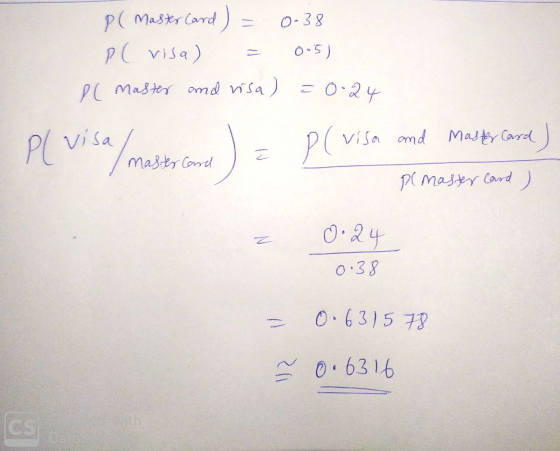 P( Master Card ) = 0.38
P( visa ) = 0.51
P( Master and visa ) = 0.24
P( visa / Master Card ) = P( visa and Master Card ) / P( Master Card )
= 0.24 / 0.38
= 0.631578
≅ 0.6316
CS